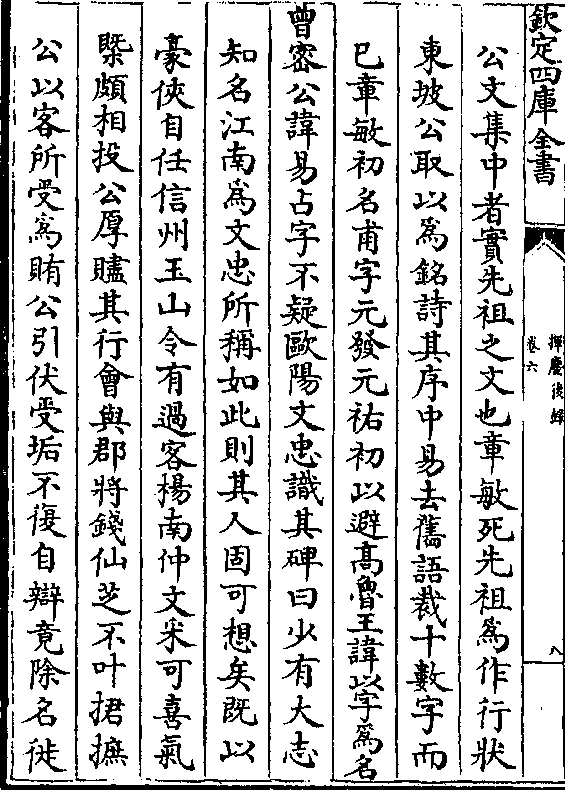 欽定四庫全書
揮麈後錄
卷六
八
公文集中者實先祖之文也章敏死先祖為作行狀
東坡公取以為銘詩其序中易去舊語裁十數字而
已章敏初名甫字元發元祐初以避高魯王諱以字為名
曾密公諱易占字不疑歐陽文忠識其碑曰少有大志
知名江南為文忠所稱如此則其人固可想矣既以
豪俠自任信州玉山令有過客楊南仲文采可喜氣
槩頗相投公厚贐其行會與郡將錢仙芝不叶捃摭
公以客所受為賄公引伏受垢不復自辯竟除名徙